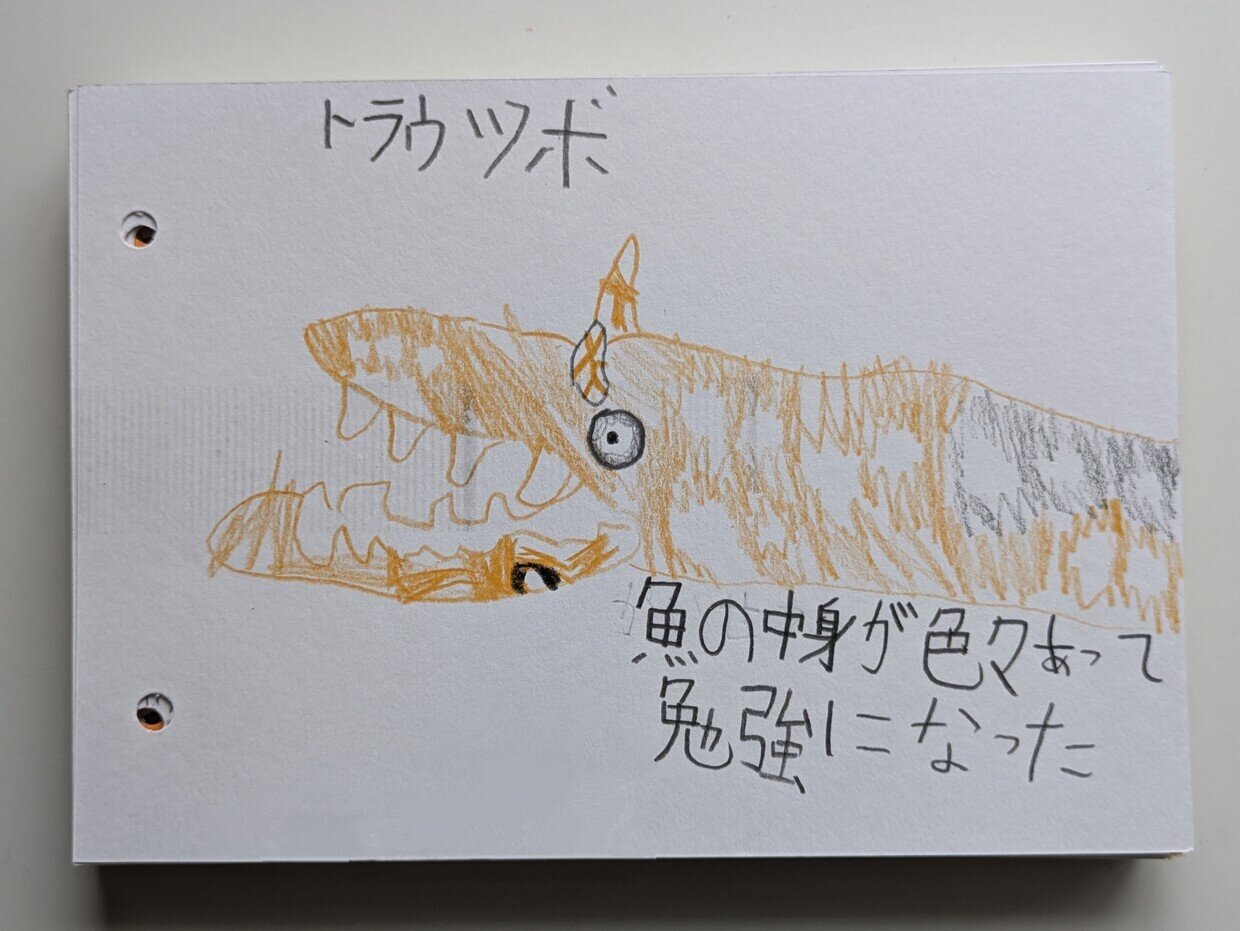 トラウツボ
魚の中身が色々あって
勉強になった